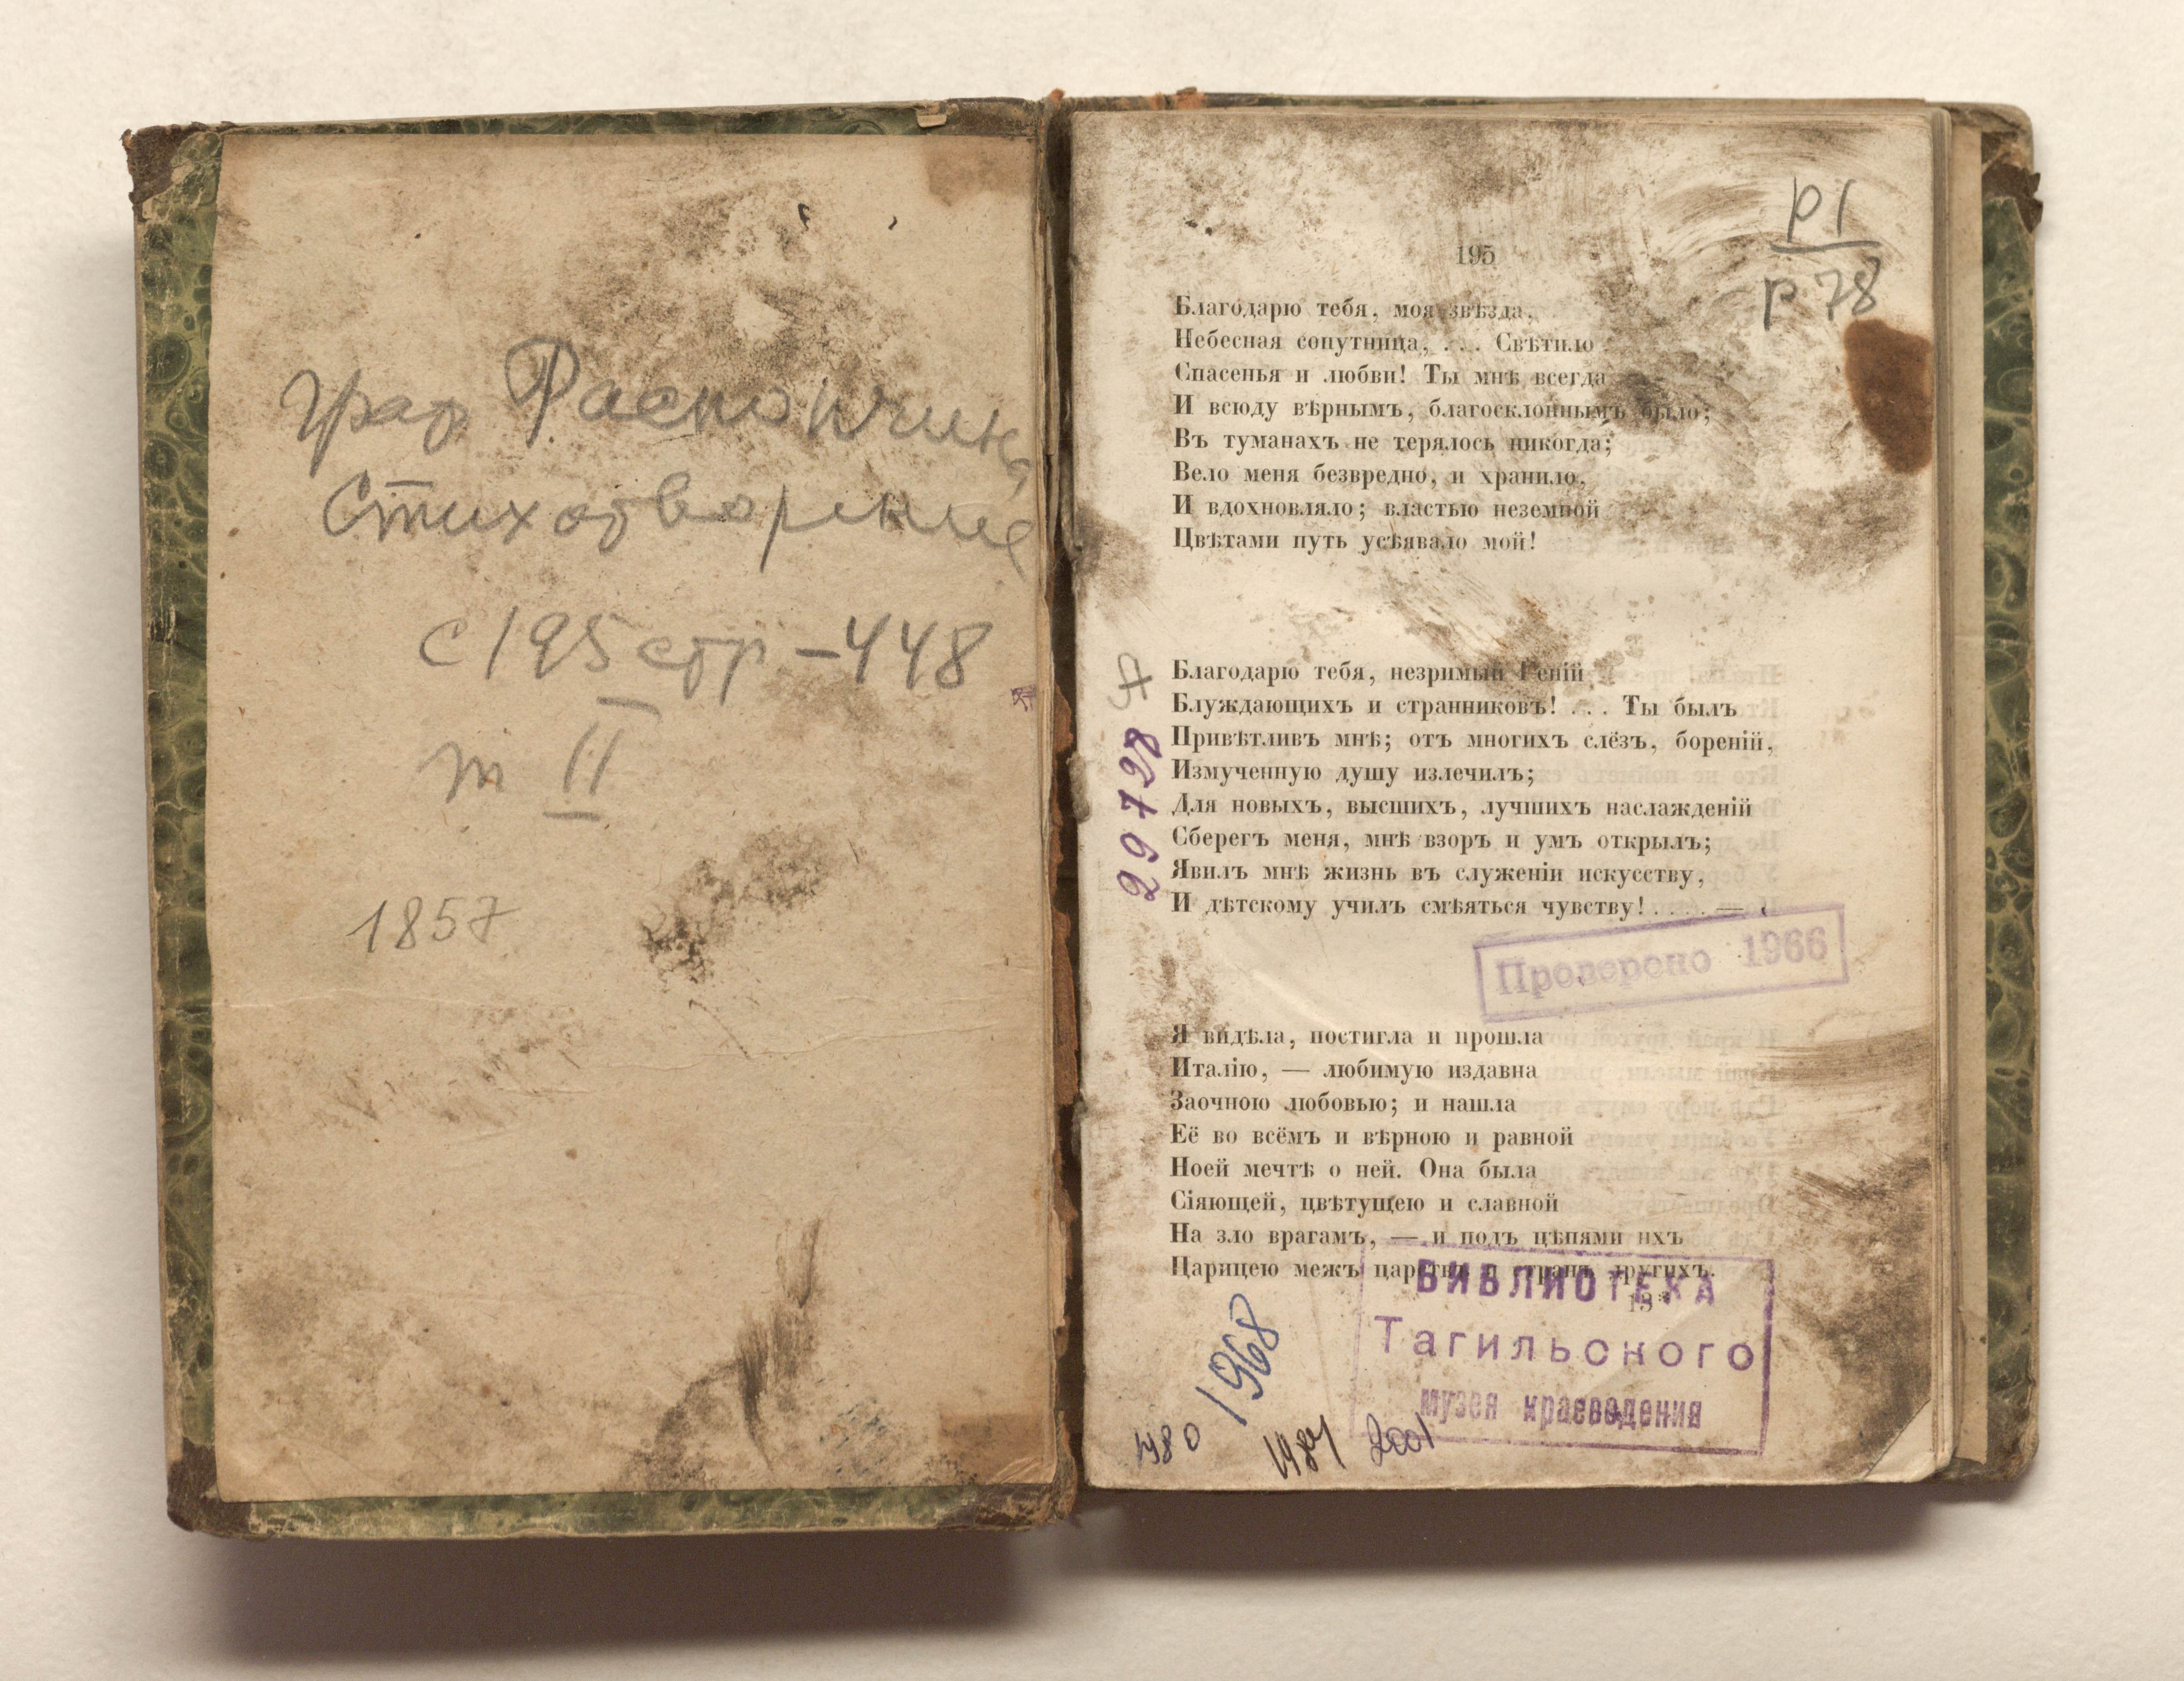 Граф Распопчина
Стихотворение
с 195 стр – 448
т II
1857
р 1
р 78
195
Благодарю тебя, моя звѣзда,
Небесная сопутница, . . . Свѣтило
Спасенья и любви! Ты мнѣ всегда
И всюду вѣрнымъ, благосклоннымъ было;
Въ туманахъ не терялось никогда;
Вело меня безвредно, и хранило,
И вдохновляло; властью неземной
Цвѣтами путь усѣявало мой!
Благодарю тебя, незримый Геній
Блуждающихъ и странниковъ! . . . Ты былъ
Привѣтливъ мнѣ; отъ многихъ слёзъ, бореній,
Измученную душу излечилъ;
Для новыхъ, высшихъ, лучшихъ наслажденій
Сберегъ меня, мнѣ взоръ и умъ открылъ;
Явилъ мнѣ жизнь въ служеніи искусству,
И дѣтскому училъ смѣяться чувству! . . . . —
29728
57
Проверено 1966
Я видѣла, постигла и прошла
Италію, — любимую издавна
Заочною любовью; и нашла
Её во всёмъ и вѣрною и равной
Ноей мечтѣ о ней. Она была
Сіяющей, цвѣтущею и славной
На зло врагамъ, — и подъ цѣпями ихъ
Царицею межъ царствъ и странъ другихъ.
13*
БИБЛИОТЕКА
Тагильского
музея краеведения
1968
1980
1987
2001